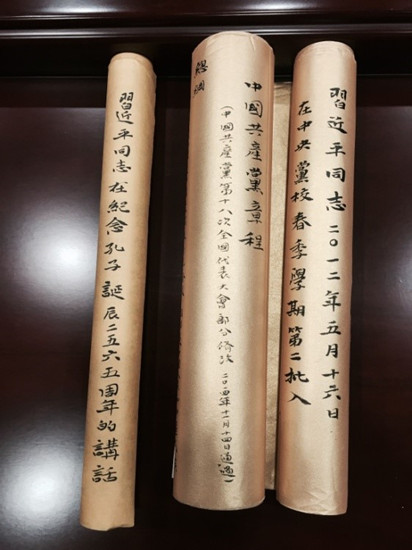 習近平同志二〇一二年五月十六日
在中央黨校春季學期第二批入
中國共產黨章程
(中國共產黨第十八次全國代表大會部分修改 二〇一四年十一月十四日通過)
總綱
習近平同志在紀念孔子誕辰二五六五周年的講話